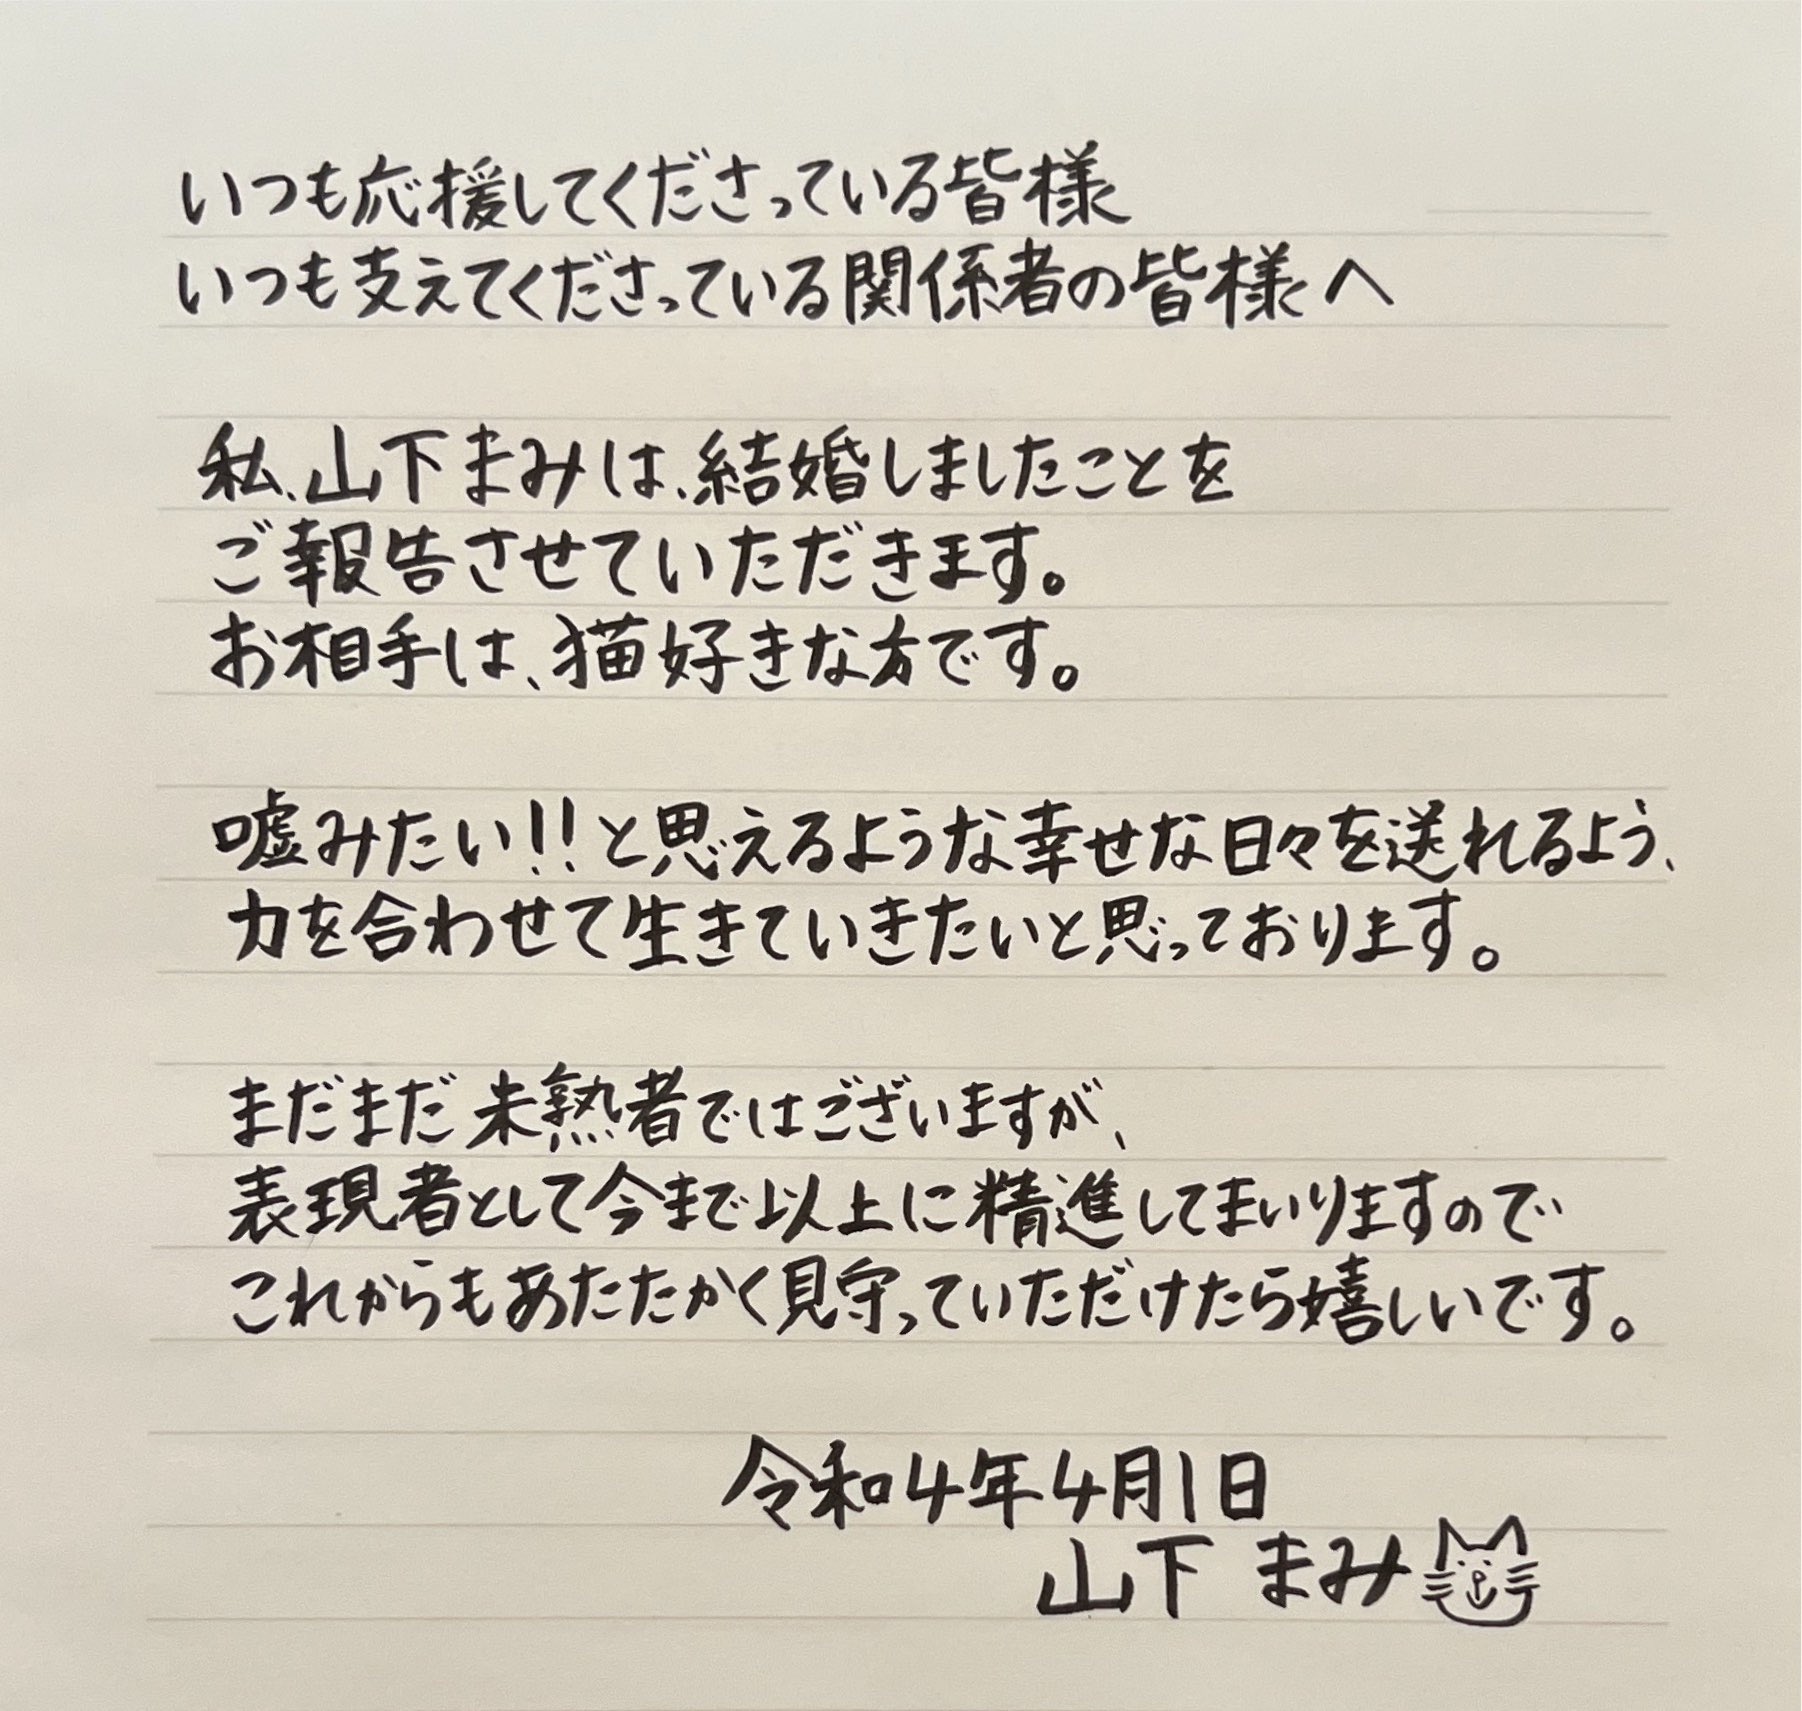 いつも応援してくださっている皆様
いつも支えてくださっている関係者の皆様へ
私、山下まみは、結婚しましたことを
ご報告させていただきます。
お相手は、猫好きな方です。
嘘みたい!!と思えるような幸せな日々を送れるよう、
力を合わせて生きていきたいと思っております。
まだまだ未熟者ではございますが、
表現者として今まで以上に精進してまいりますので
これからもあたたかく見守っていただけたら嬉しいです。
令和4年4月1日
山下 まみ